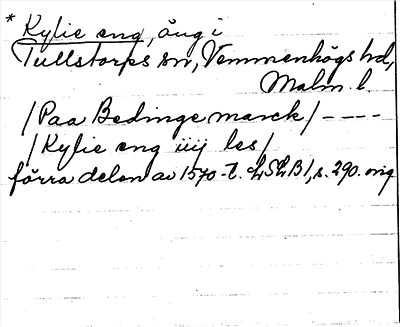 * Kylie eng, äng i
Tullstorps sn, Vemmenhögs hd,
Malm. l.
/Paa Bedinge marck/ ----
/Kylie eng iiij les/
förra delen av 1570-t. LSLB1, s. 290. orig